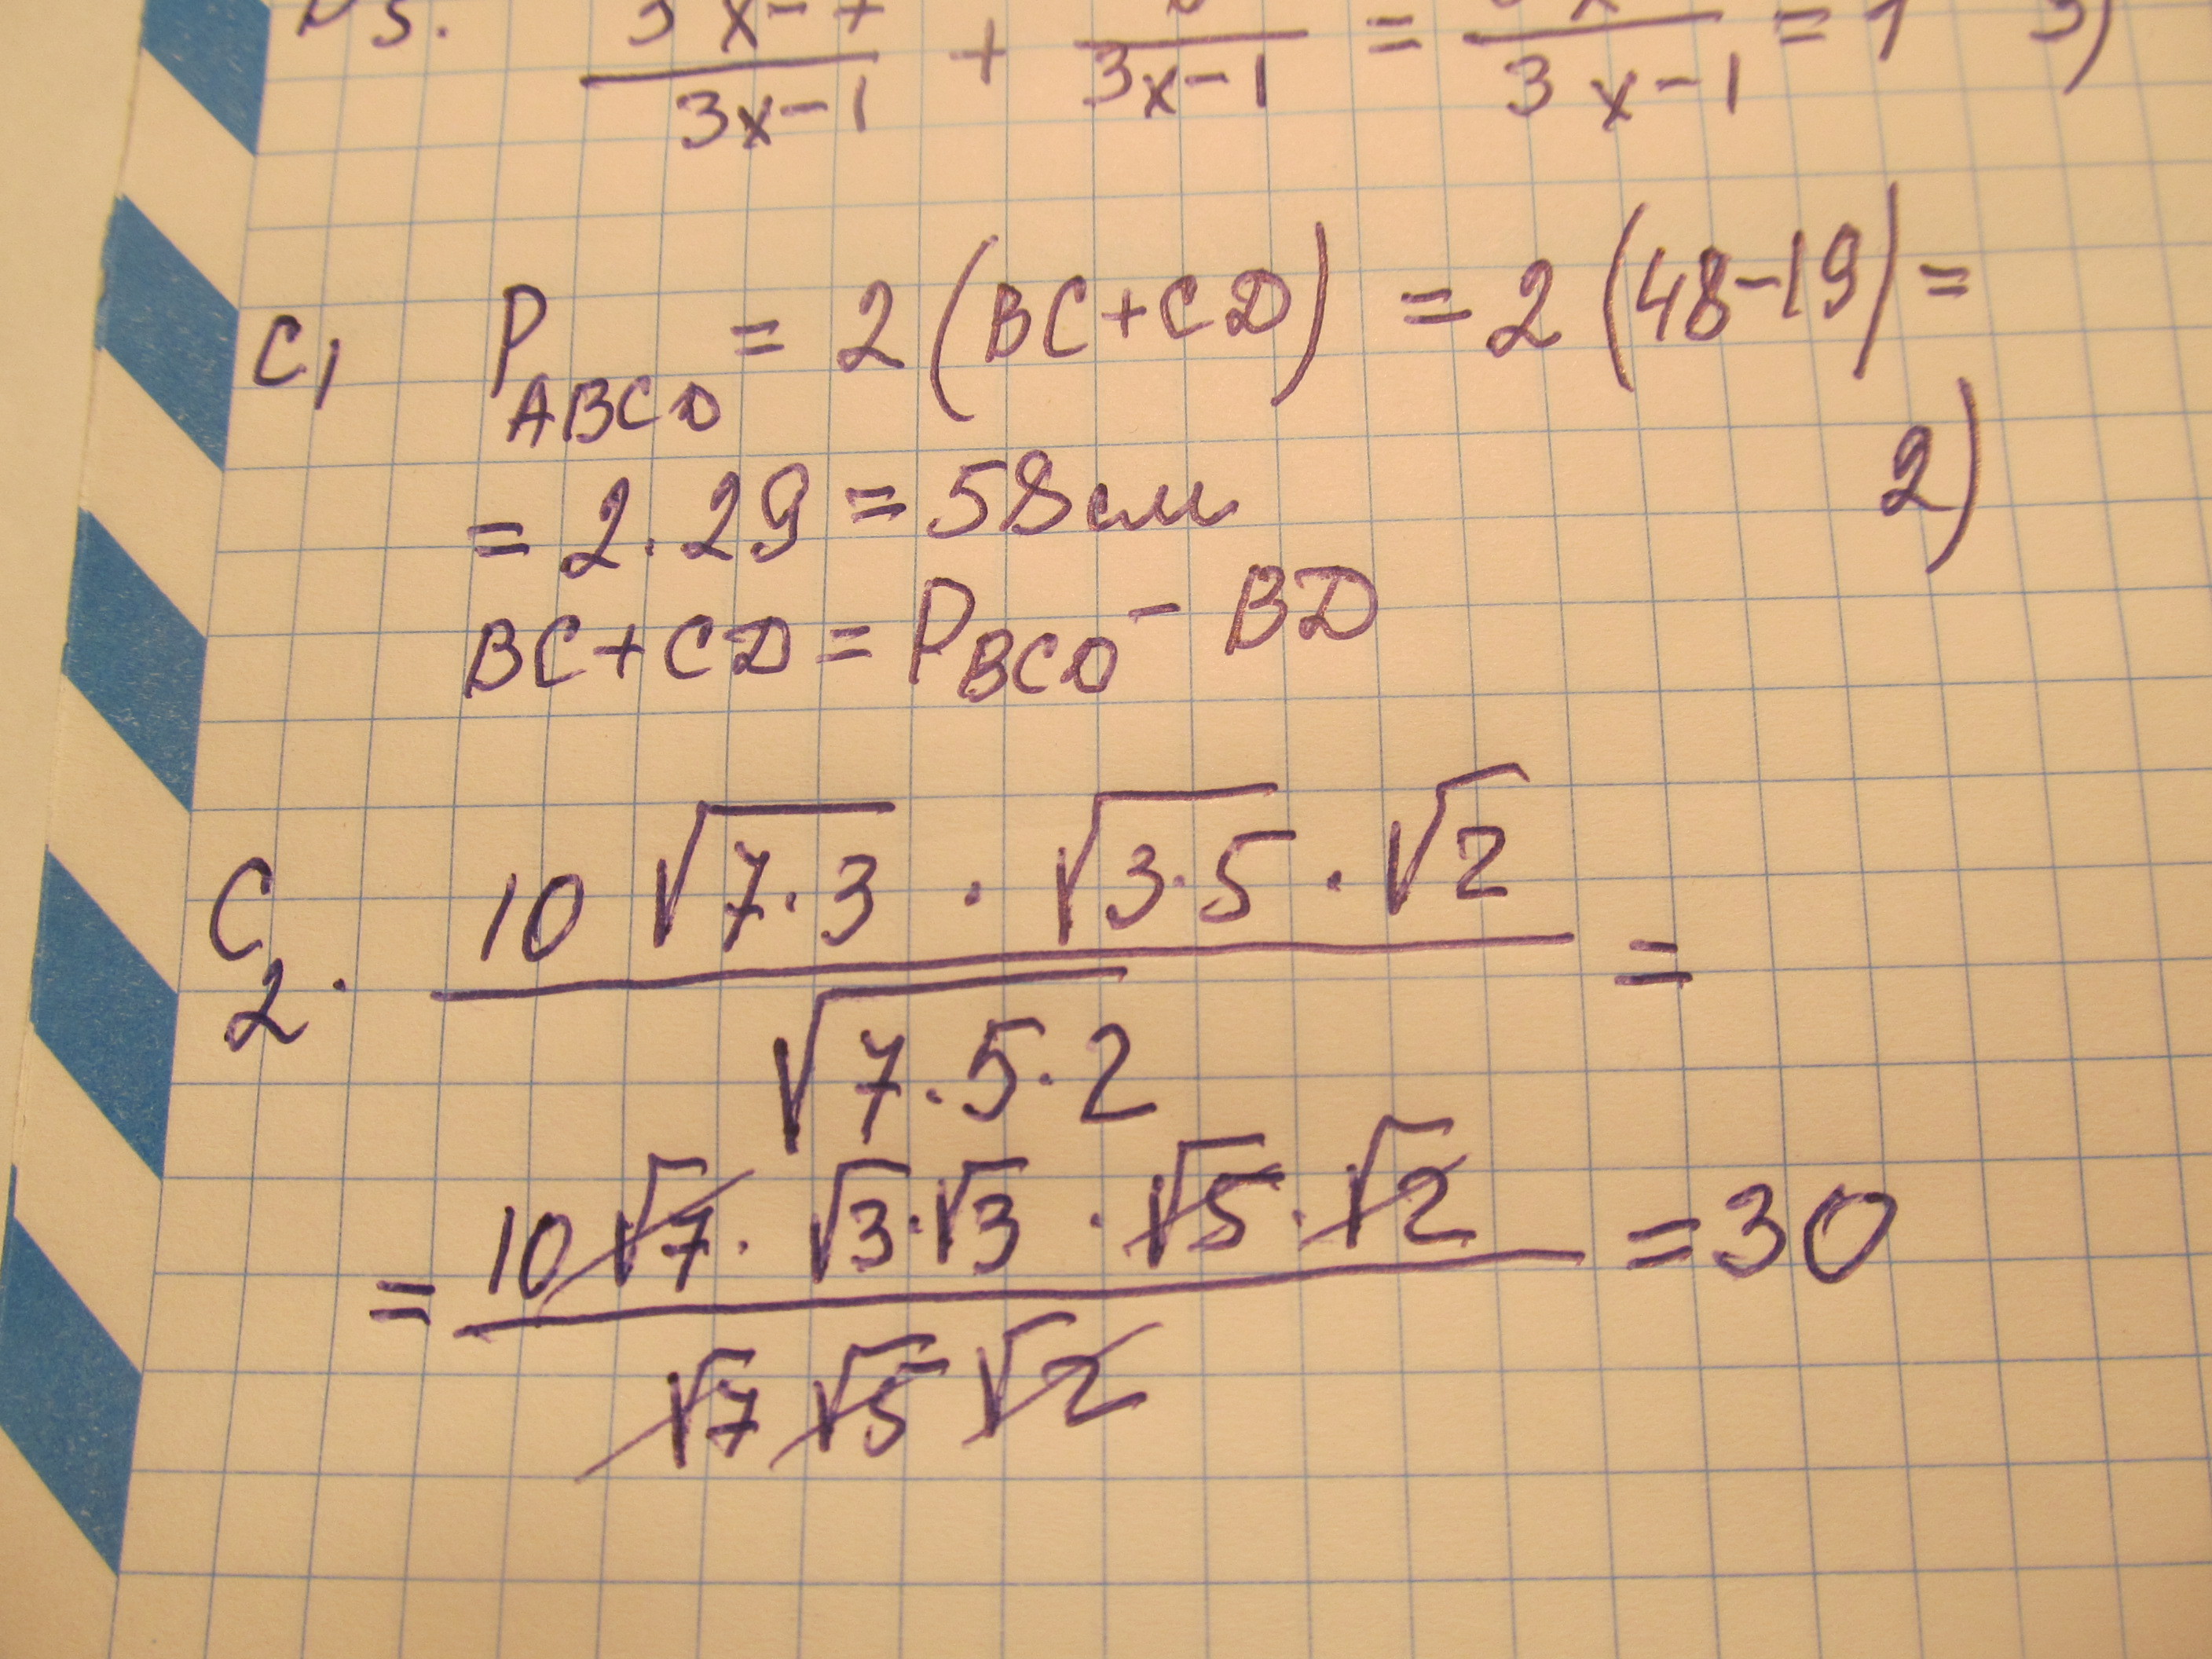 3x-1 + 3x-1 = 3x-1 = 1 3)
C1 P_ABCD = 2(BC+CD) = 2(48-19) =
= 2·29 = 58см 2)
BC+CD = P_BCD - BD
C2. 10√(7·3) · √(3·5) · √2 / √(7·5·2) =
= 10√7 · √3·√3 · √5 · √2 / √7 √5 √2 = 30